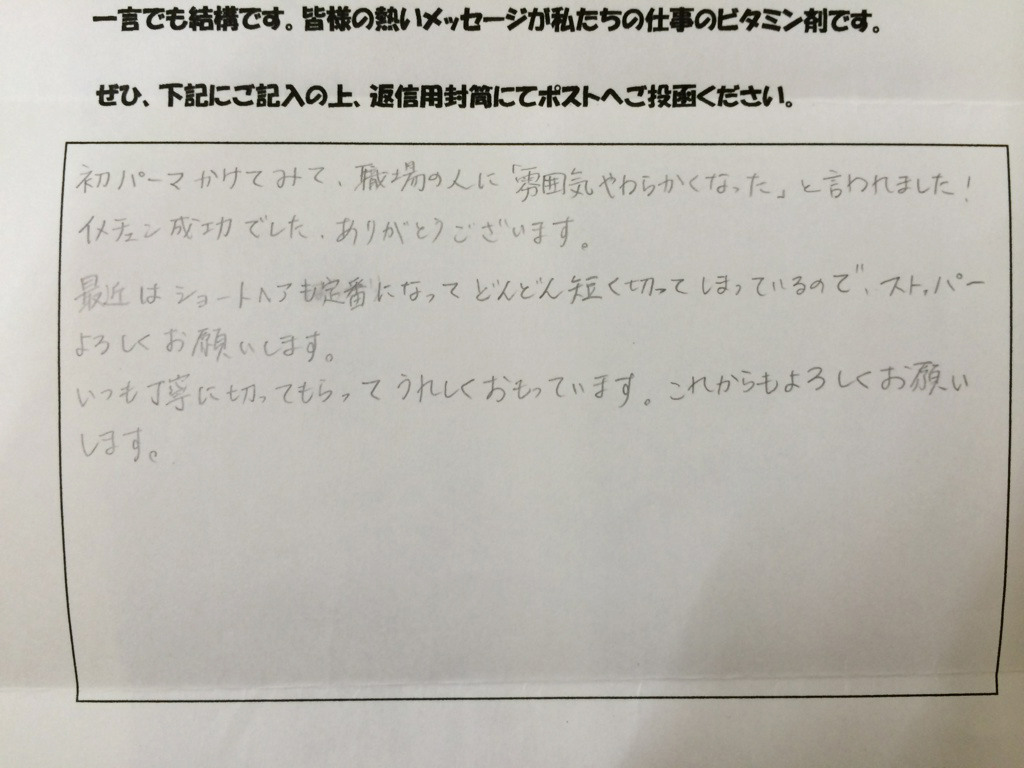 一言でも結構です。皆様の熱いメッセージが私たちの仕事のビタミン剤です。
ぜひ、下記にご記入の上、返信用封筒にてポストへご投函ください。
初パーマかけてみて、職場の人に「雰囲気やわらかくなった」と言われました!
イメチェン成功でした。ありがとうございます。
最近はショートヘアも定番になってどんどん短く切ってしまっているので、ストッパー
よろしくお願いします。
いつも丁寧に切ってもらってうれしくおもっています。これからもよろしくお願い
します。